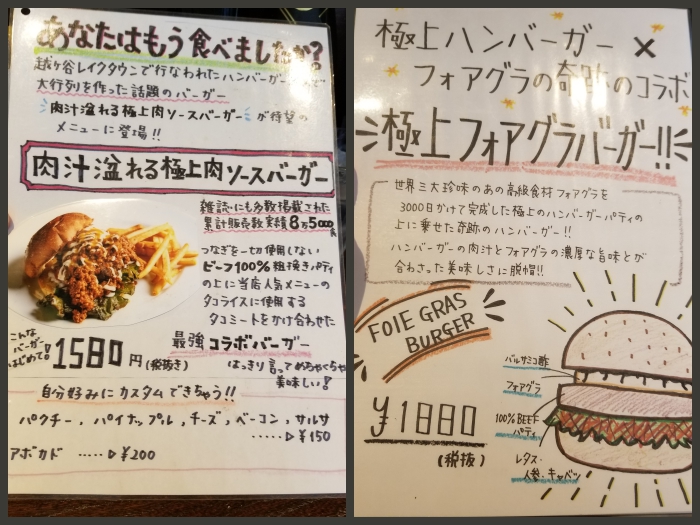 あなたはもう食べましたか?
越ヶ谷レイクタウンで行なわれたハンバーガー
大行列を作った話題のバーガー
肉汁溢れる極上肉ソースバーガー が待望の
メニューに登場!!
肉汁溢れる極上肉ソースバーガー
雑誌にも多数掲載された
累計販売数実績8万5000食
つなぎを一切使用しない
ビーフ100%粗挽きパティ
の上に当店人気メニューの
タコライスに使用する
タコミートをかけ合わせた
最強コラボバーガー
こんな
バーガー
はじめて!
1580円(税抜き)
はっきり言ってめちゃくちゃ
美味しい!
自分好みにカスタムできちゃう!!
パクチー, パイナップル, チーズ, ベーコン, サルサ
・・・・・▷¥150
アボカド ・・・・・▷¥200
極上ハンバーガー ×
フォアグラの奇跡のコラボ
極上フォアグラバーガー!!
世界三大珍味のあの高級食材フォアグラを
3000日かけて完成した極上のハンバーガーパティの
上に乗せた奇跡のハンバーガー!!
ハンバーガーの肉汁とフォアグラの濃厚な旨味とが
合わさった美味しさに脱帽!!
FOIE GRAS
BURGER
¥1880
(税抜)
バルサミコ酢
フォアグラ
100%BEEF
パティ
レタス・
人参・キャベツ